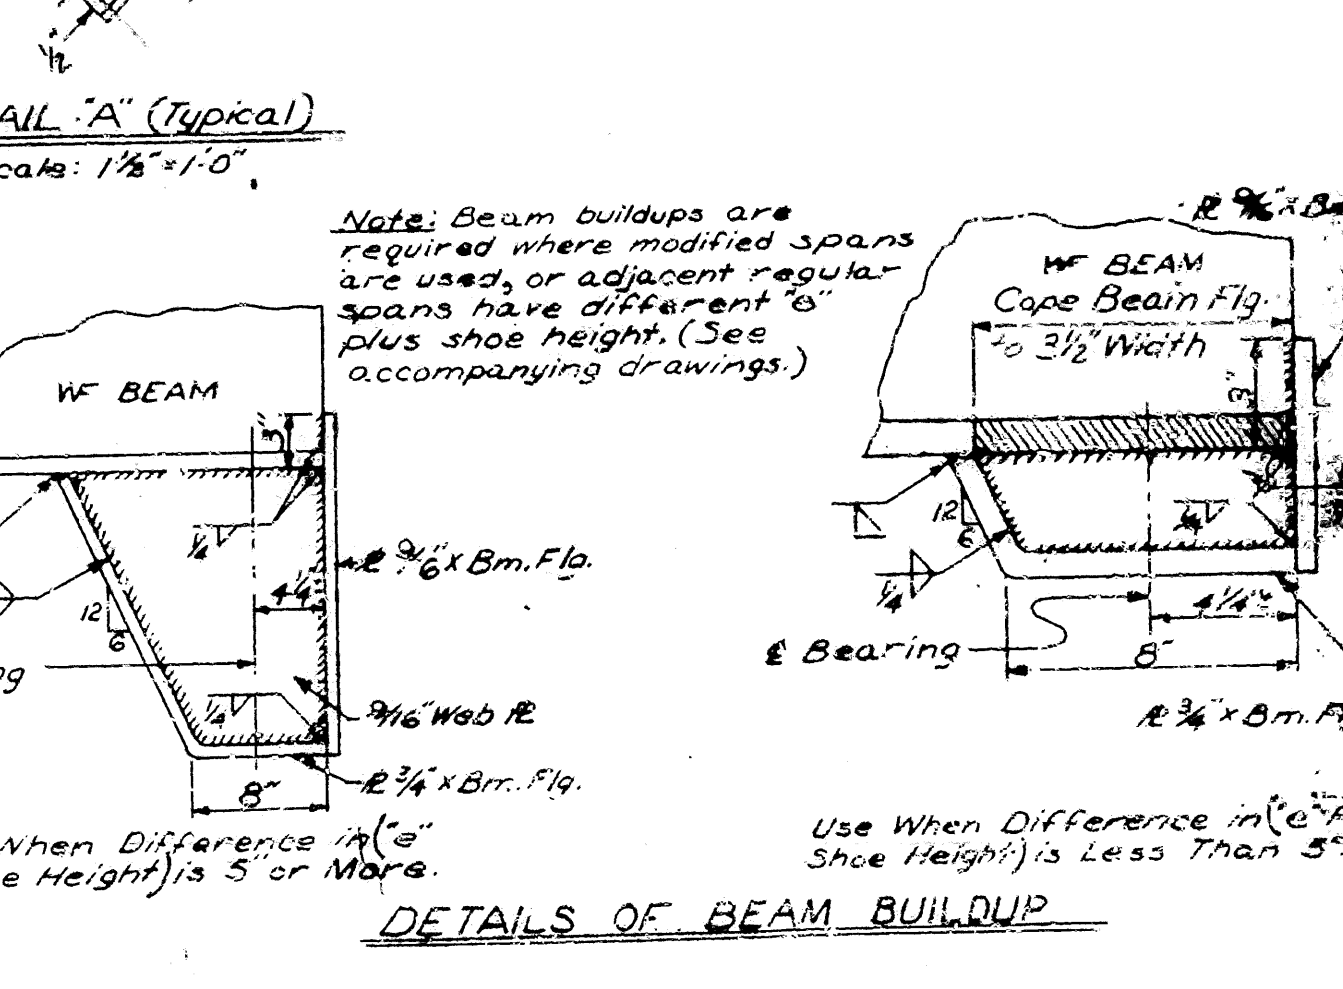 1/2"
AIL "A" (Typical)
cale: 1 1/2" = 1'-0"
Note: Beam buildups are
required where modified spans
are used, or adjacent regular
spans have different "e"
plus shoe height. (See
accompanying drawings.)
WF BEAM
3"
1/4
4 1/4"
12
6
℄ 9/16" x Bm. Flg.
1/4
9/16" Web PL
PL 3/4" x Bm. Flg.
8"
When Difference in ("e"
e Height) is 5" or More.
PL 9/16" x Bm
WF BEAM
Cope Beam Flg.
to 3 1/2" Width
3"
12
6
1/4
1/4
4 1/4"
℄ Bearing
8"
PL 3/4" x Bm. F
Use When Difference in ("e"
Shoe Height) is Less Than 5"
DETAILS OF BEAM BUILDUP